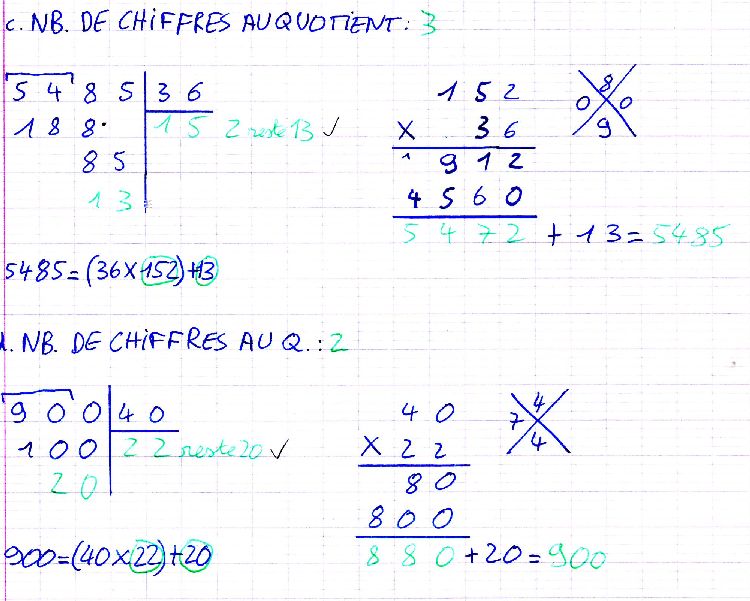 c. NB. DE CHIFFRES AU QUOTIENT : 3
5 4 8 5 3 6
1 8 8 1 5 2 reste 13 ✓
8 5
1 3
1 5 2
X 3 6
1 9 1 2
4 5 6 0
5 4 7 2 + 13 = 5485
8
0 0
9
5485 = (36 × 152) + 13
d. NB. DE CHIFFRES AU Q. : 2
9 0 0 4 0
1 0 0 2 2 reste 20 ✓
2 0
4 0
X 2 2
8 0
8 0 0
8 8 0 + 20 = 900
4
7
4
900 = (40 × 22) + 20